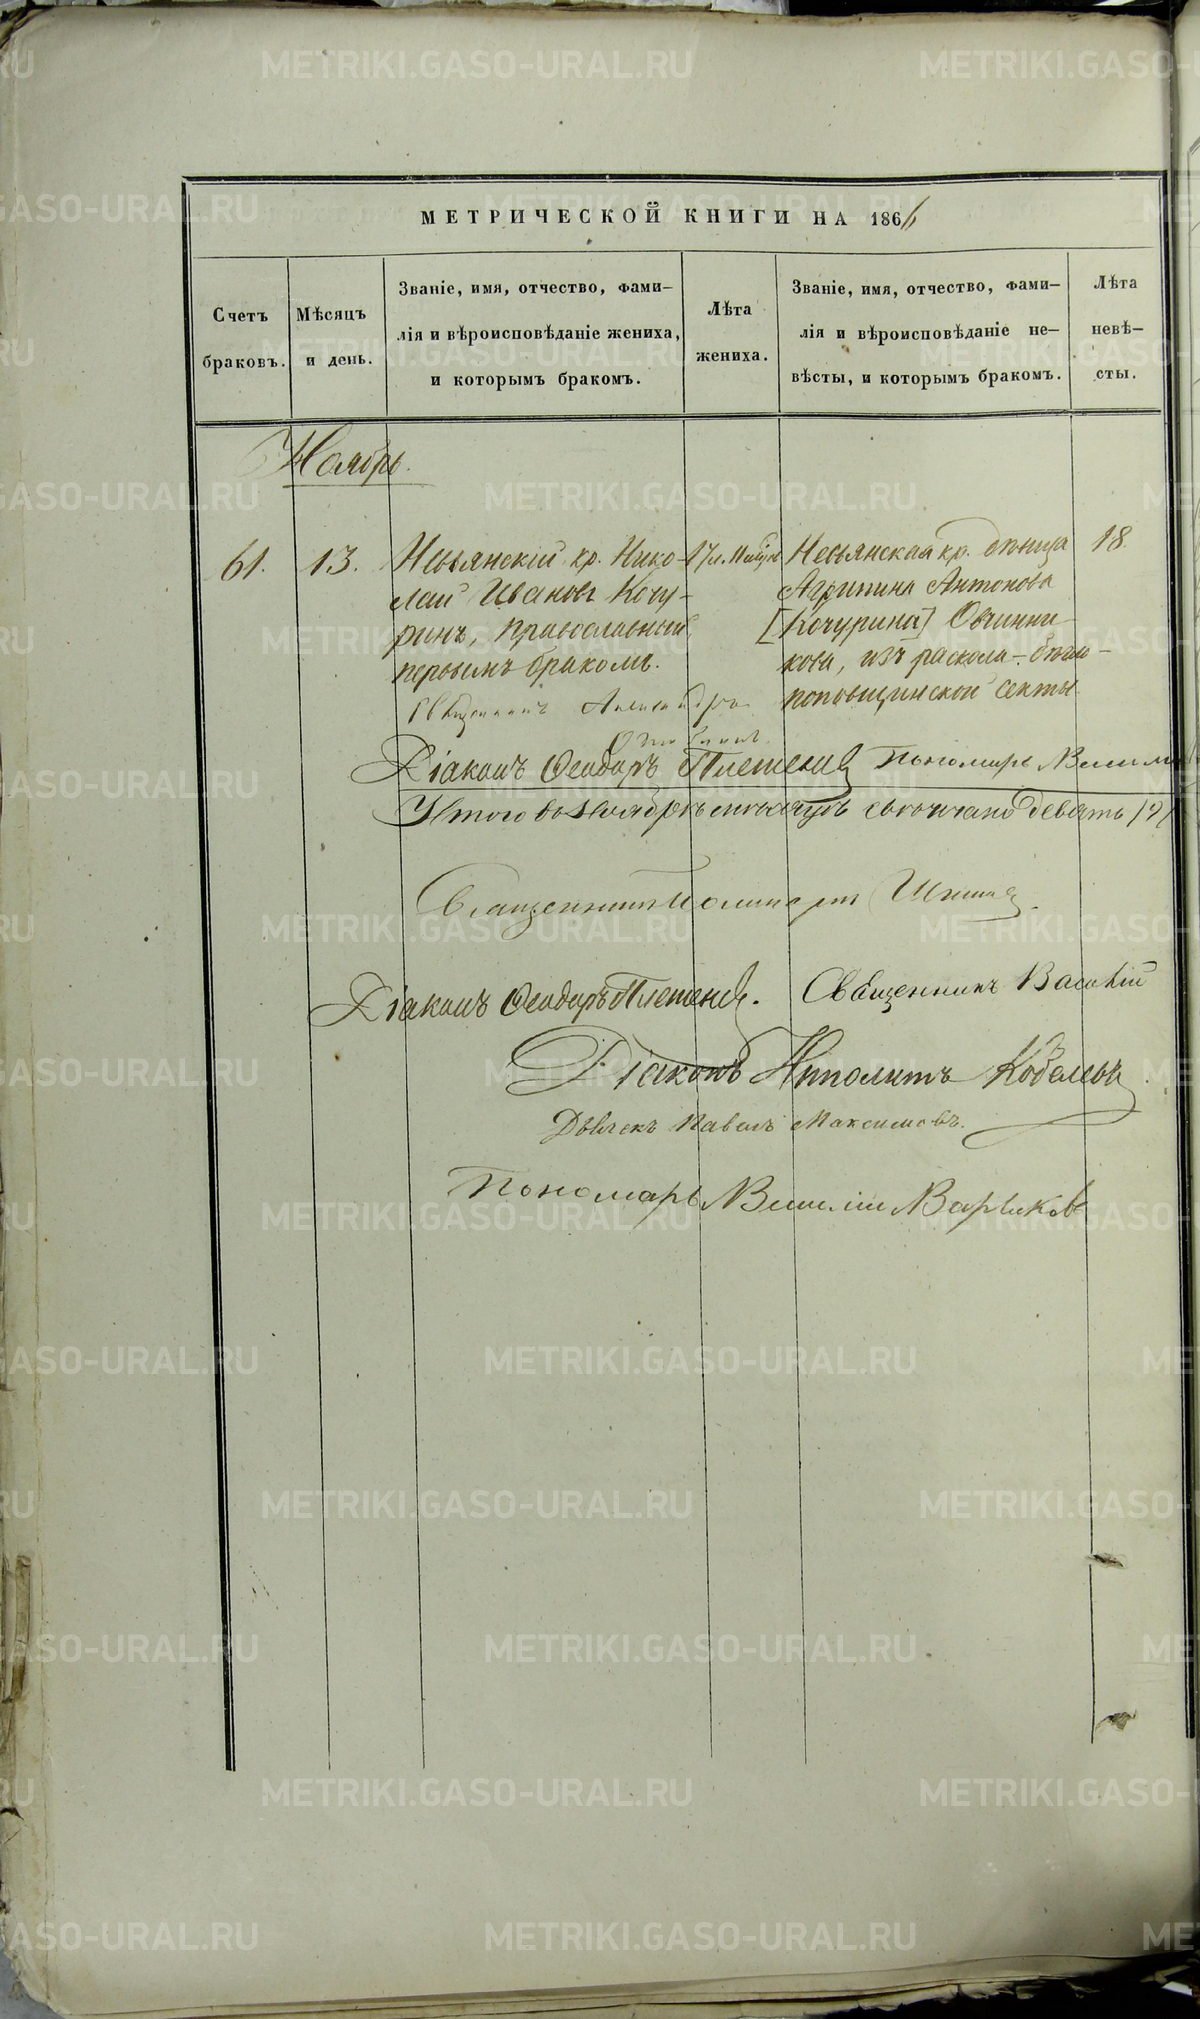 МЕТРИЧЕСКОЙ КНИГИ НА 1866
Счетъ
браковъ.
Мѣсяцъ
и день.
Званіе, имя, отчество, фами-
лія и вѣроисповѣданіе жениха,
и которымъ бракомъ.
Лѣта
жениха.
Званіе, имя, отчество, фами-
лія и вѣроисповѣданіе не-
вѣсты, и которымъ бракомъ.
Лѣта
невѣ-
сты.
Ноябрь.
61.
13.
Невьянскій кр. Нико-
лай Ивановъ Кочу-
ринъ, православный,
первымъ бракомъ.
17 л.
Невьянская кр. дѣвица
Агрипина Антонова
[Кочурина] Овчинни-
кова, изъ раскола-
поповщинской секты.
18.
Священникъ Александръ
Діаконъ Ѳеодоръ Плетеневъ Пономарь
Итого во Ноябрѣ мѣсяцѣ бракочтано девять /9/
Священникъ
Діаконъ Ѳеодоръ Плетеневъ. Священникъ Василій
Діаконъ Ипполитъ Ковалевъ
Дьячекъ Павелъ Максимовъ.
Пономарь
METRIKI.GASO-URAL.RU